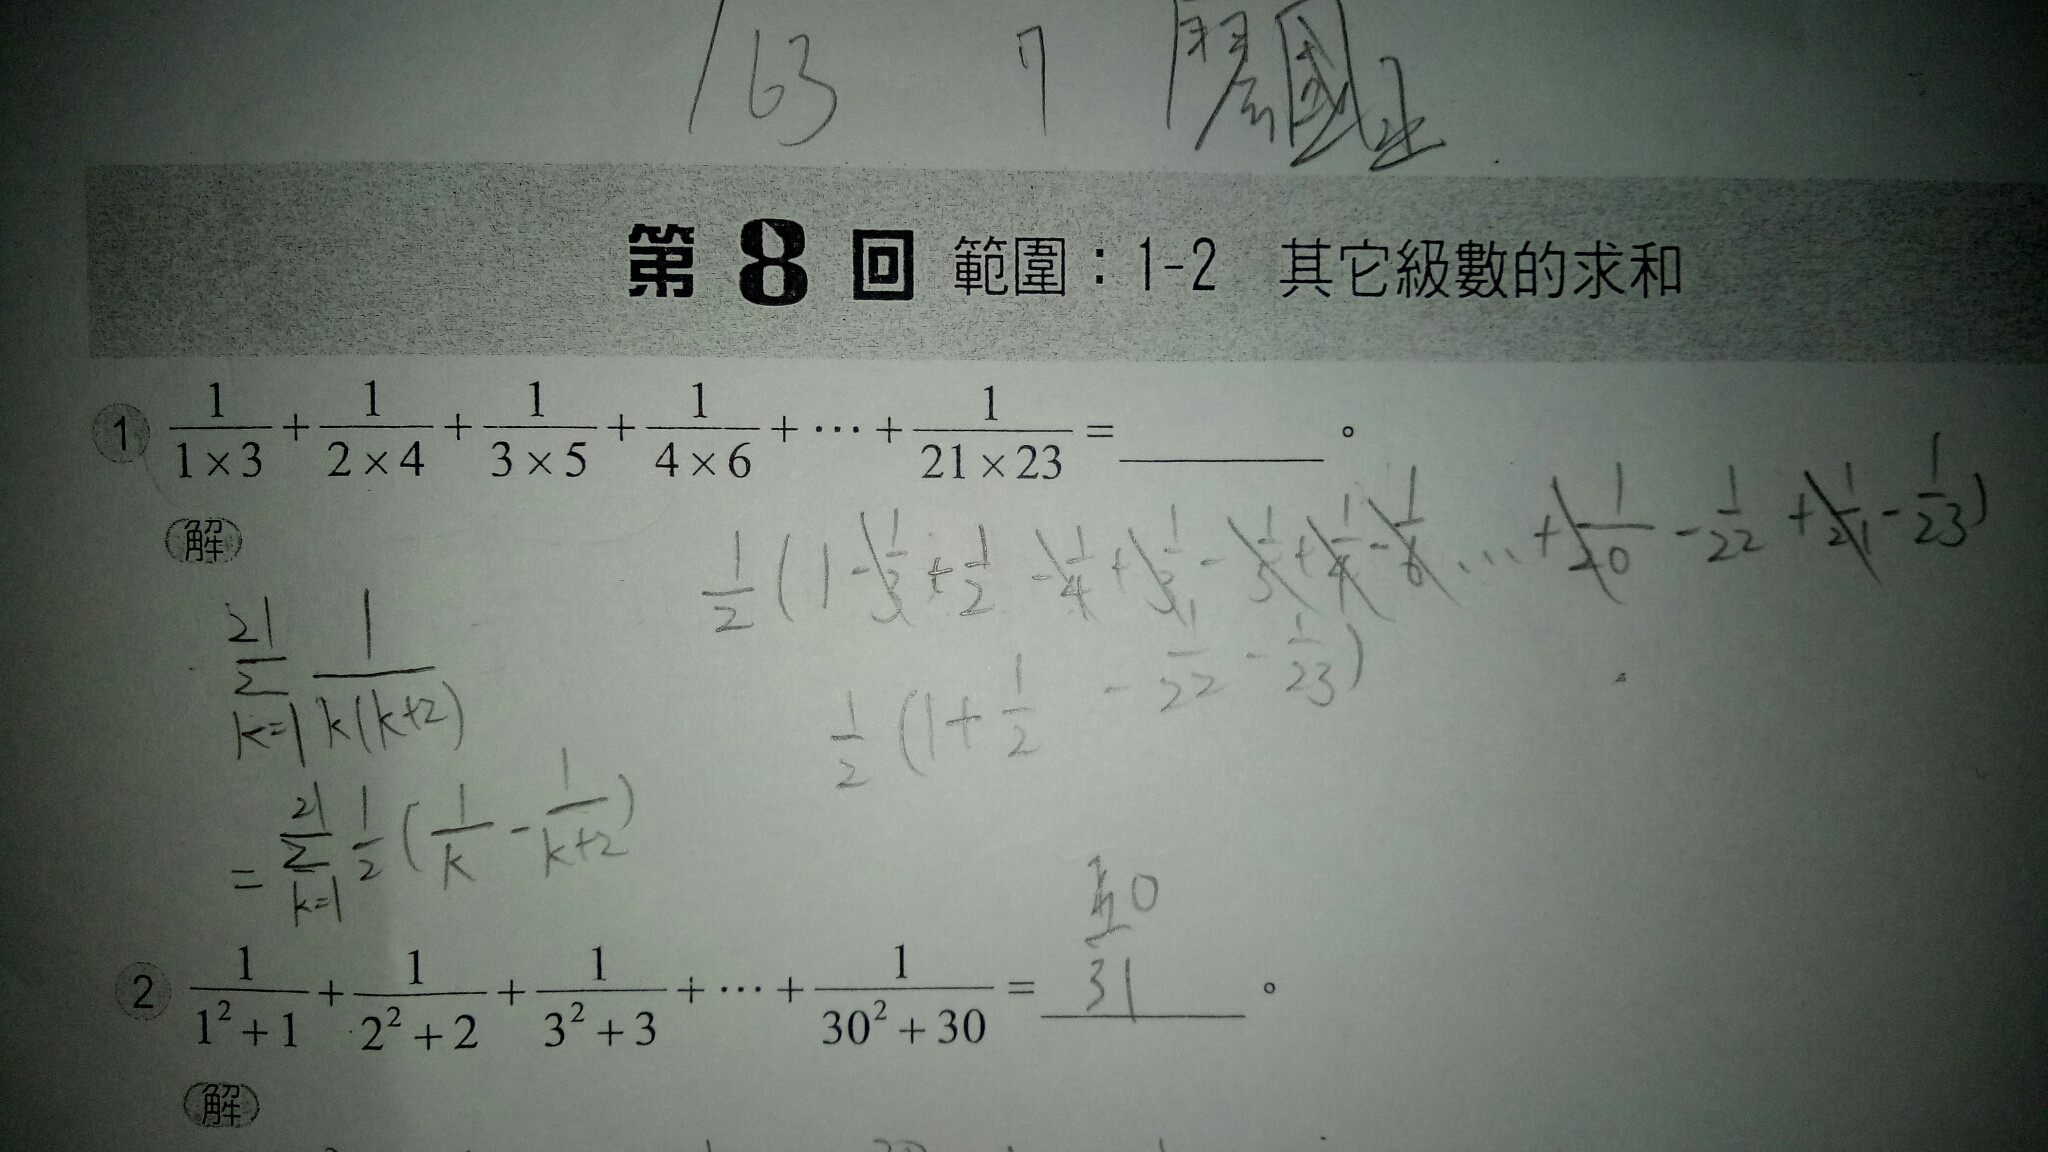 163 7
第 8 回 範圍：1-2 其它級數的求和
1 1/(1×3) + 1/(2×4) + 1/(3×5) + 1/(4×6) + … + 1/(21×23) = ______ 。
解
1/2 (1 - 1/3 + 1/2 - 1/4 + 1/3 - 1/5 + 1/4 - 1/6 … + 1/20 - 1/22 + 1/21 - 1/23)
21 Σ k=1 1/(k(k+2))
1/2 (1 + 1/2 - 1/22 - 1/23)
= 21 Σ k=1 1/2 (1/k - 1/(k+2))
2 1/(1²+1) + 1/(2²+2) + 1/(3²+3) + … + 1/(30²+30) = 0/31 。
解